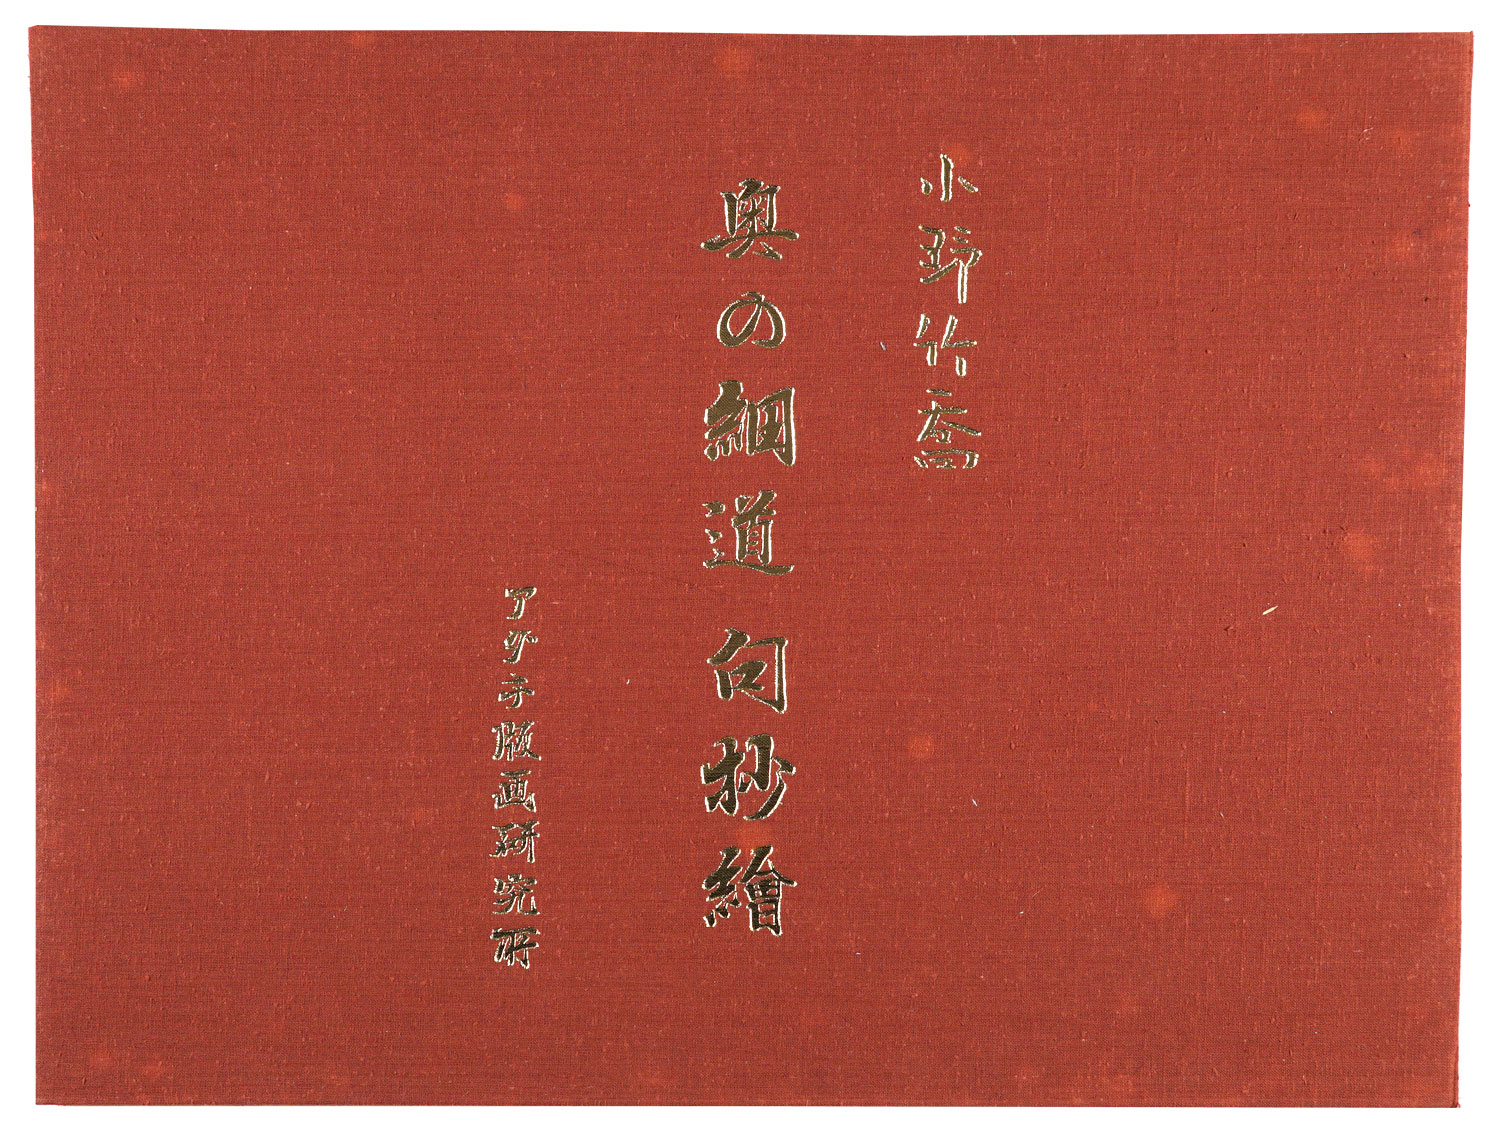 小野竹喬
奥の細道句抄繪
アダチ版画研究所